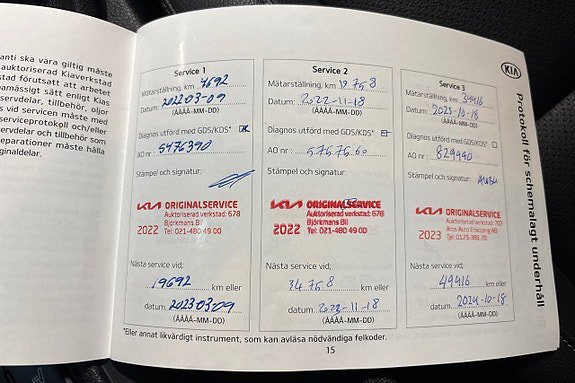 anti ska vara giltig måste
auktoriserad Kiaverkstad
stad förutsatt att arbetet
namässigt sätt enligt Kias
servdelar, tillbehör, oljor
s vid servicen måste med
serviceprotokoll och/eller
servdelar och tillbehör som
eparationer måste hålla
ginaldelar.
Service 1
Mätarställning, km 4692
Datum: 2022 03-09
(ÅÅÅÅ-MM-DD)
Diagnos utförd med GDS/KDS*
AO nr : 5476390
Stämpel och signatur:
KIA ORIGINALSERVICE
Auktoriserad verkstad: 678
Björkmans Bil
2022 Tel: 021-480 49 00
Nästa service vid;
19692 km eller
datum 2023 03-09
(ÅÅÅÅ-MM-DD)
Service 2
Mätarställning, km 19758
Datum: 2022-11-18
(ÅÅÅÅ-MM-DD)
Diagnos utförd med GDS/KDS*
AO nr : 5757560
Stämpel och signatur:
KIA ORIGINALSERVICE
Auktoriserad verkstad: 678
Björkmans Bil
2022 Tel: 021-480 49 00
Nästa service vid;
34758 km eller
datum
(ÅÅÅÅ-MM-DD)
Service 3
Mätarställning, km 34416
Datum: 2023-10-18
(ÅÅÅÅ-MM-DD)
Diagnos utförd med GDS/KDS*
AO nr : 829990
Stämpel och signatur:
KIA ORIGINALSERVICE
Auktoriserad verkstad: 702
Aros Auto Enköping AB
2023
Nästa service vid;
49416 km eller
datum 2024-10-18
(ÅÅÅÅ-MM-DD)
*Eller annat likvärdigt instrument, som kan avläsa nödvändiga felkoder.
15
KIA
Protokoll för schemalagt underhåll